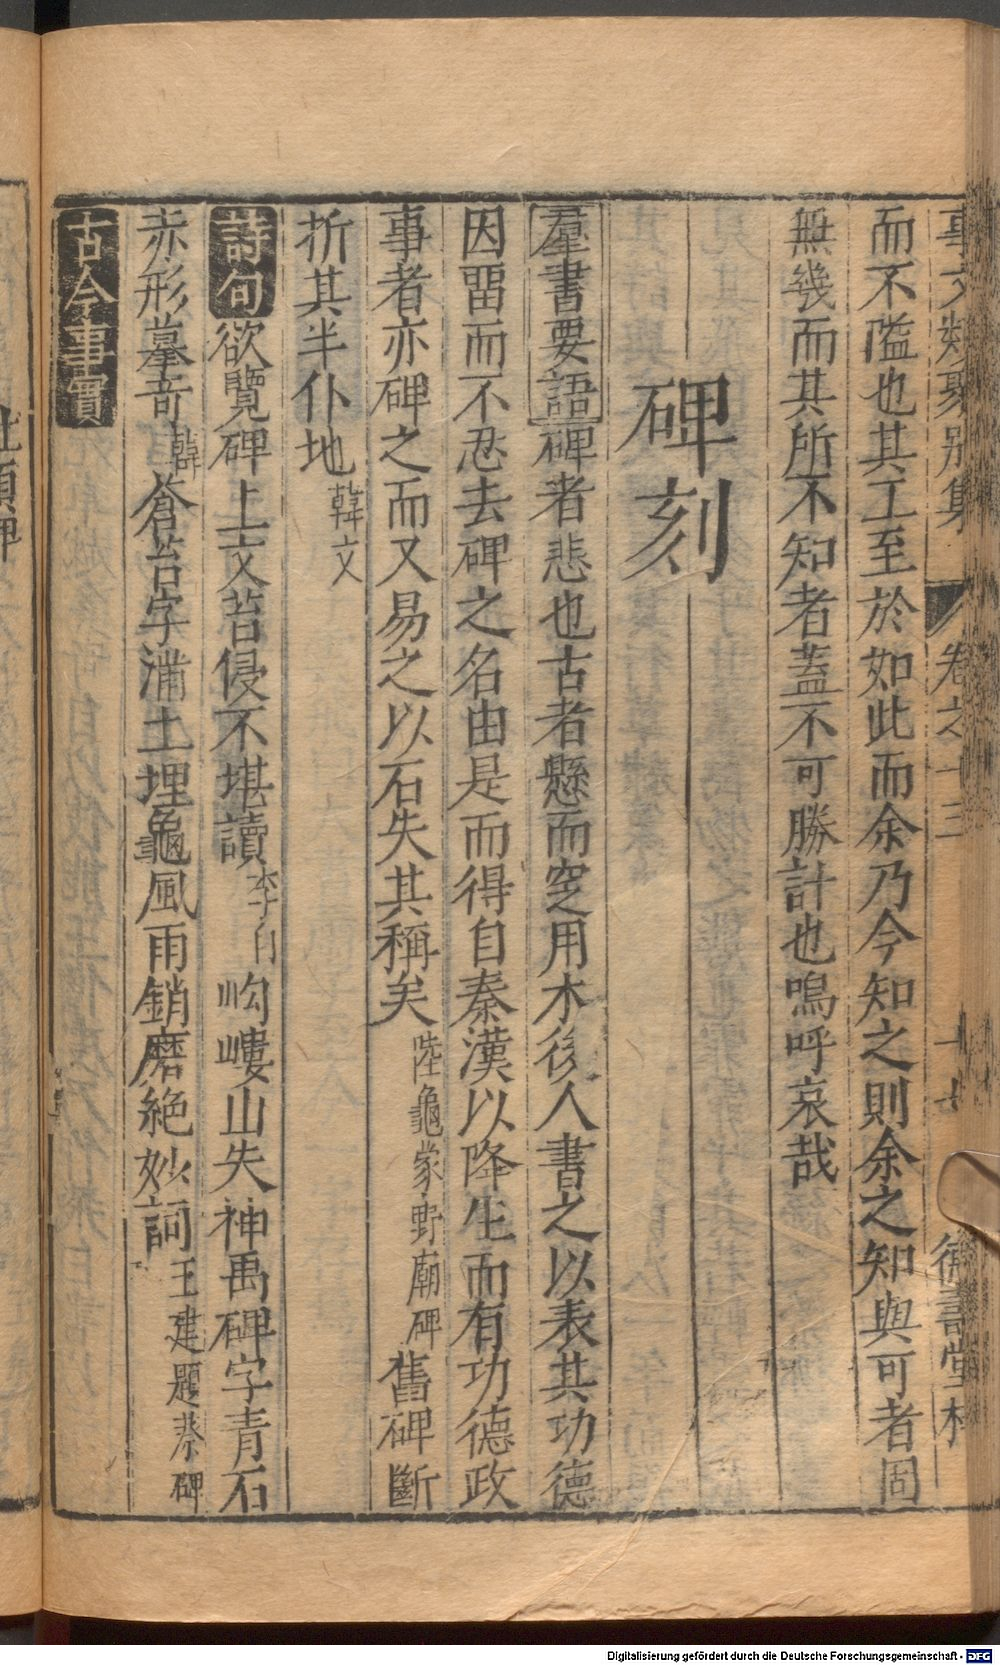 事文類聚別集 卷之十三 十七 德壽堂梓
而不隘也其工至於如此而余乃今知之則余之知與可者固
無幾而其所不知者蓋不可勝計也嗚呼哀哉
碑刻
羣書要語碑者悲也古者懸而窆用木後人書之以表其功德
因畱而不忍去碑之名由是而得自秦漢以降生而有功德政
事者亦碑之而又易之以石失其稱矣陸龜蒙野廟碑舊碑斷
折其半仆地韓文
詩句欲覽碑上文苔侵不堪讀李白岣嶁山失神禹碑字青石
赤形摹奇韓蒼苔字滿土埋龜風雨銷磨絶妙詞王建題蔡碑
古今事實
Digitalisierung gefördert durch die Deutsche Forschungsgemeinschaft - DFG